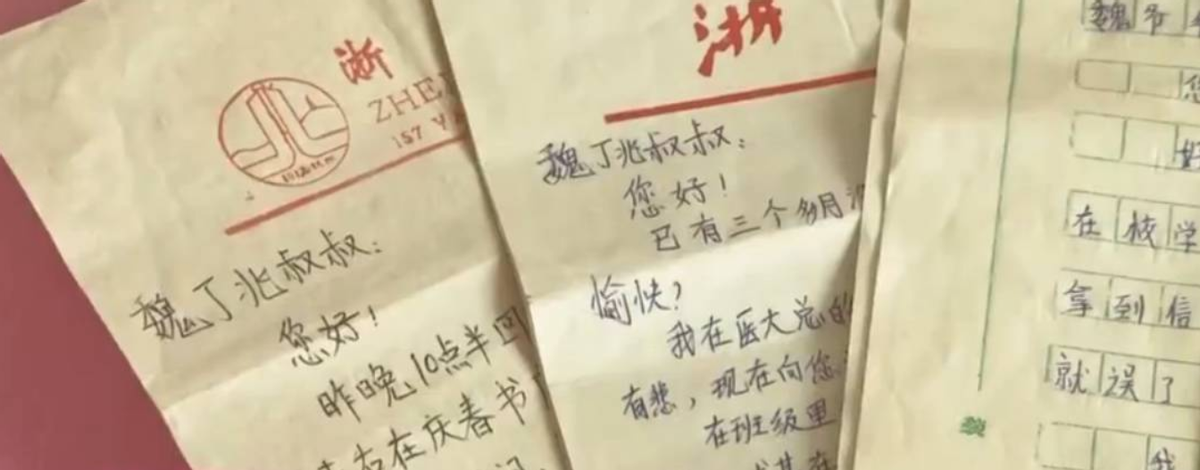 浙
ZHE
157 Y
魏丁兆叔叔：
您好！
昨晚10点半回
在庆春书
浙
魏丁兆叔叔：
您好！
已有三个多月没
愉快？
我在医大总的
有悲，现在向您
在班级里
魏爷
您
好
在校学
拿到信
就误了
我
装